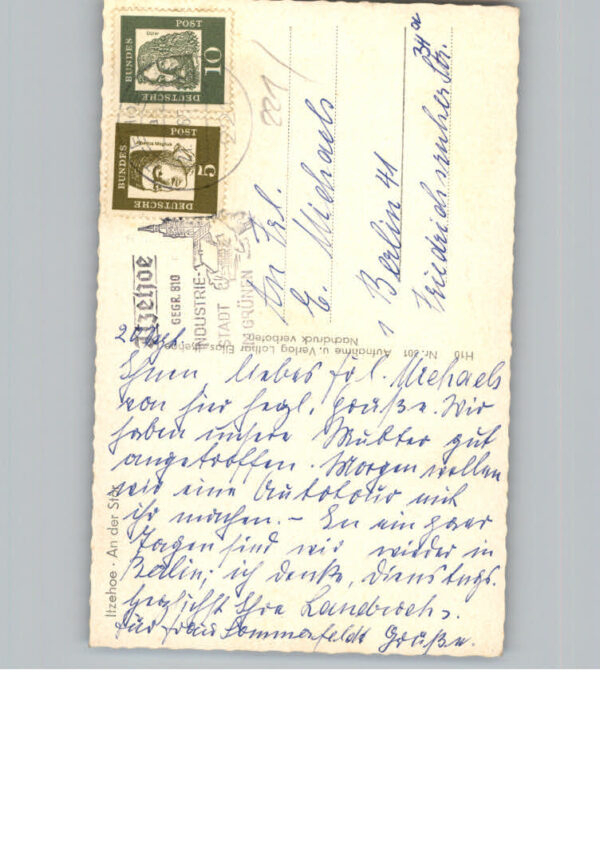 DEUTSCHE
BUNDES
POST
10
DEUTSCHE
BUNDES
POST
5
Itzehoe
GEGR. 810
INDUSTRIE-
STADT
IM GRÜNEN
221
An Frl.
E. Michaels
1 Berlin 41
Friedrichsruher Str.
34a
H10 Nr. 801 Aufnahme u. Verlag Lothar
Nachdruck verboten
Itzehoe · An der Stör
Ihnen liebes Frl. Michaels
von hier herzl. Grüße. Wir
haben unsere Mutter gut
angetroffen. Morgen wollen
wir eine Autotour mit
ihr machen. – In ein paar
Tagen sind wir wieder in
Berlin; ich denke, Dienstags.
Herzlichst Ihre
für Frau Sommerfeldt Grüße.